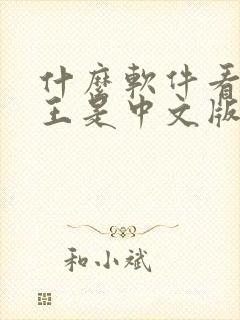 什麼軟件看
王是中文版
和小斌